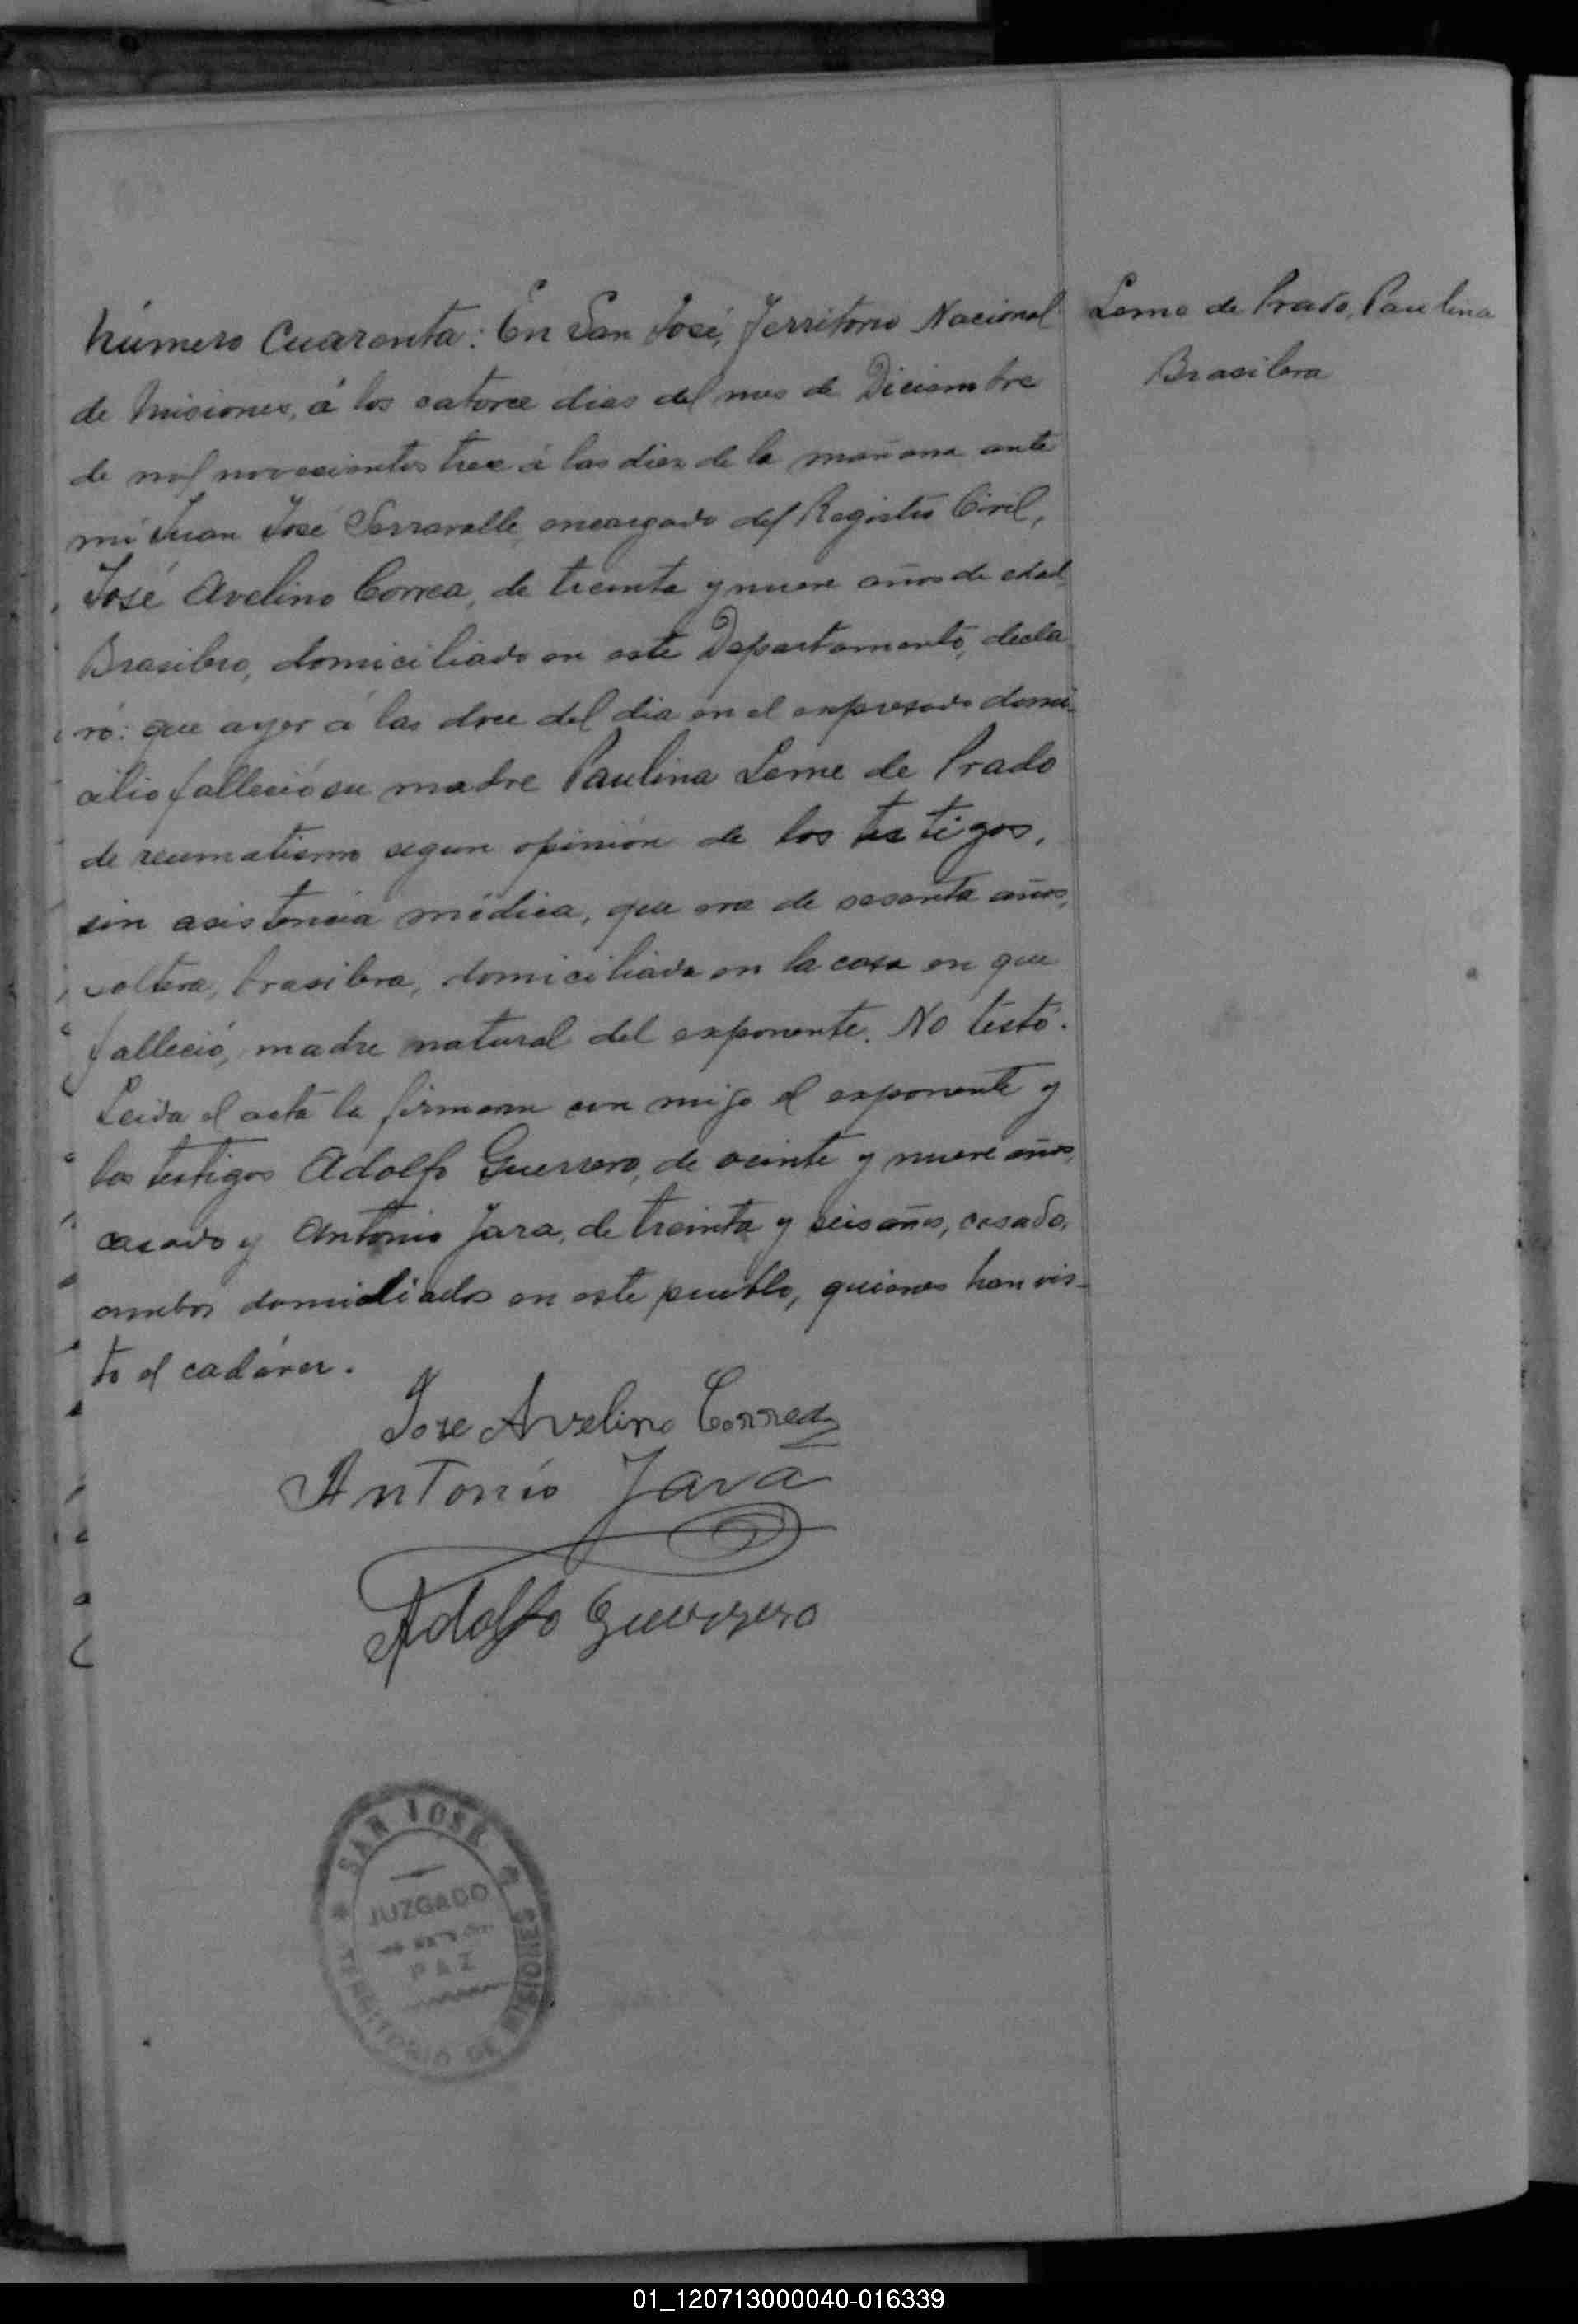 Número Cuarenta: En San José, Territorio Nacional
de Misiones, á los catorce dias del mes de Diciembre
de mil novecientos trece á las diez de la mañana ante
mí Juan José Serravalle, encargado del Registro Civil,
José Avelino Correa, de treinta y nueve años de edad
Brasilero, domiciliado en este Departamento, decla
ró: que ayer á las doce del dia en el expresado domi-
cilio falleció su madre Paulina Leme de Prado
de reumatismo segun opinión de los testigos,
sin asistencia médica, que era de sesenta años,
soltera, brasilera, domiciliada en la casa en que
falleció, madre natural del exponente. No testó.
Leida el acta la firmaron con migo el exponente y
los testigos Adolfo Guerrero, de veinte y nueve años,
casado y Antonio Jara, de treinta y seis años, casado,
ambos domiciliados en este pueblo, quienes han vis-
to el cadáver.
Jose Avelino Correa
Antonio Jara
Adolfo Guerrero
Leme de Prado, Paulina
Brasilera
SAN JOSE
JUZGADO
PAZ
TERRITORIO DE MISIONES
01_120713000040-016339